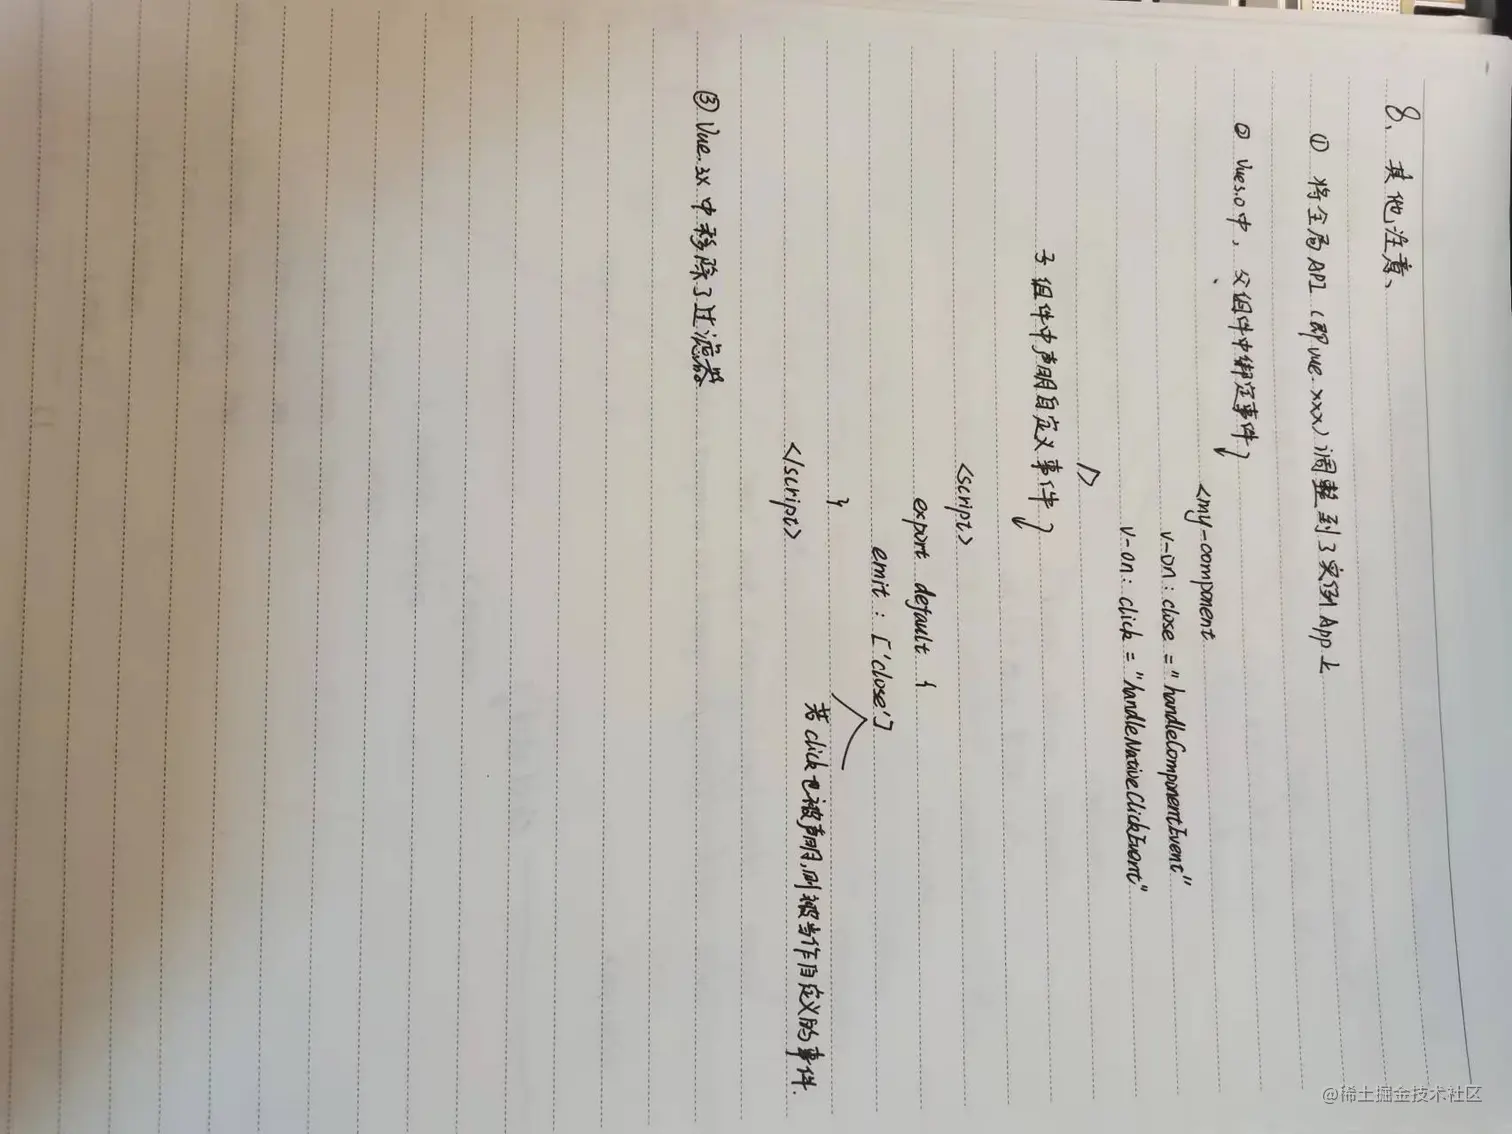 8、其他注意、
① 将全局API（即Vue.xxx）调整到了实例App上
② Vue3.0中，父组件中绑定事件
<my-component
v-on:close="handleComponentEvent"
v-on:click="handleNativeClickEvent"
/>
子组件中声明自定义事件
<script>
export default {
emit: ['close']
}
若click也被声明,则被当作自定义的事件.
</script>
③ Vue.3x中移除了过滤器
@稀土掘金技术社区